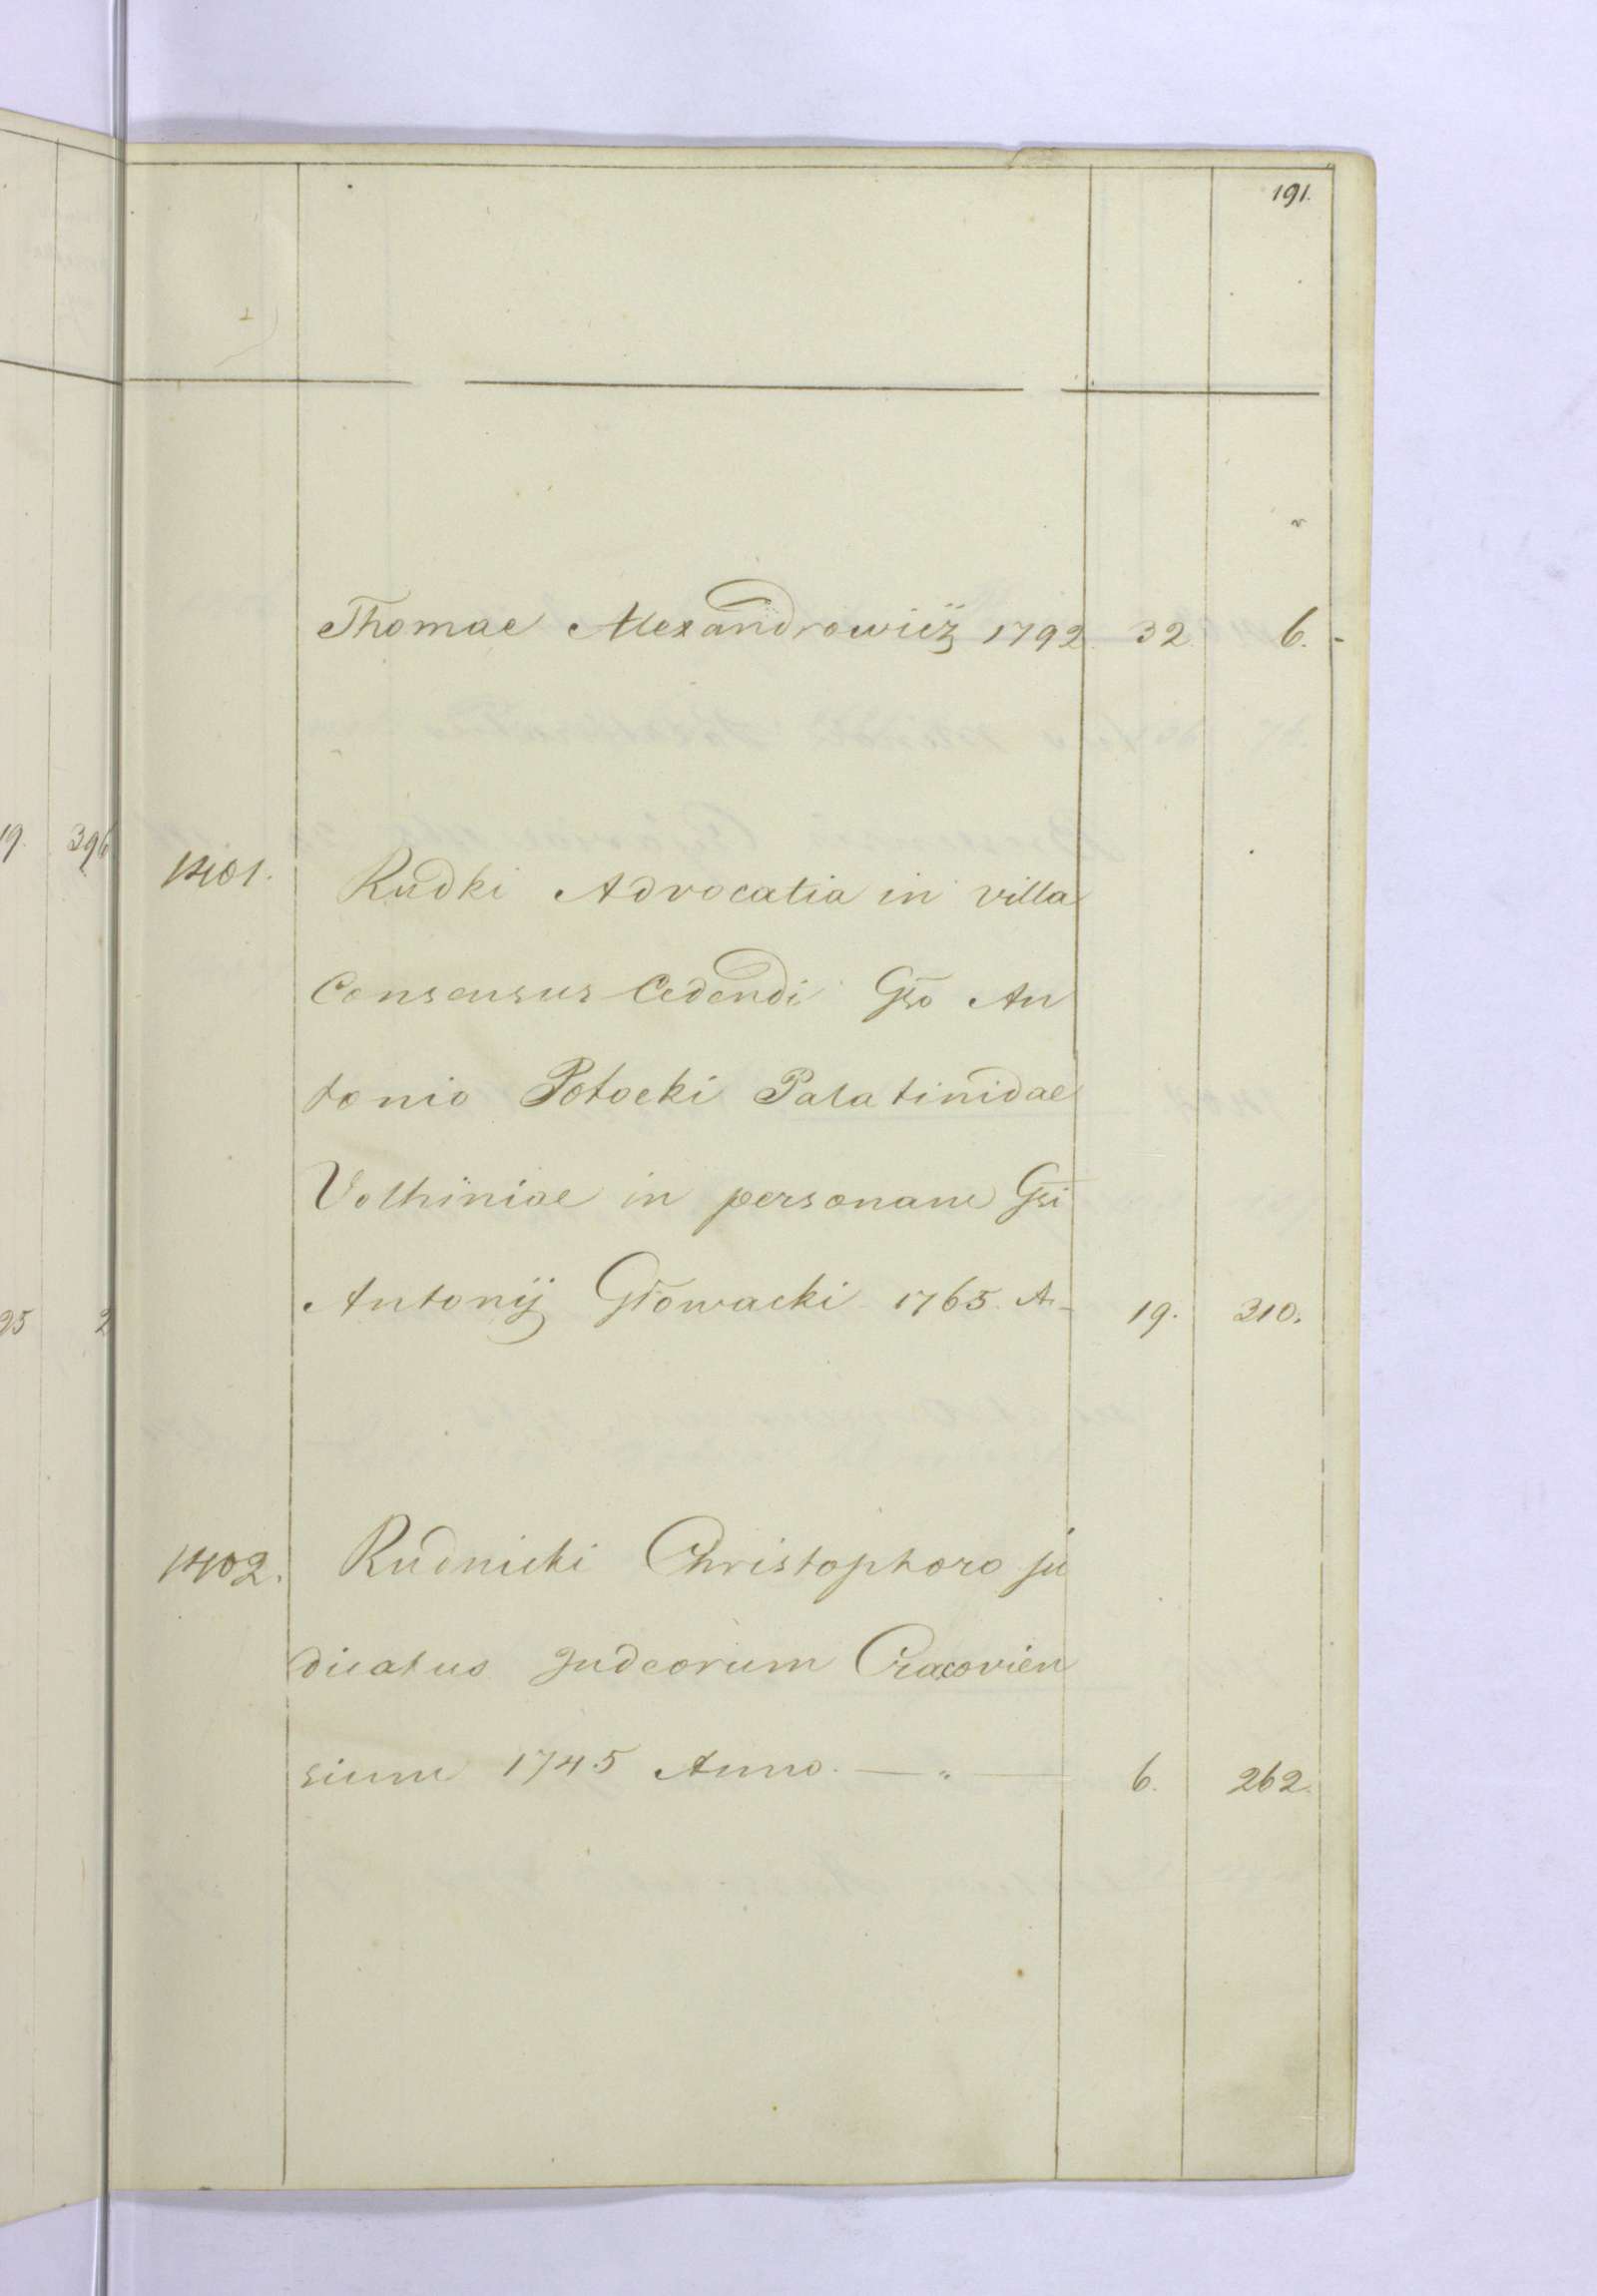 191.
Thomae Alexandrowicz 1792 32. 6. -
19. 396
1401. Rudki Advocatia in villa
Consensus Cedendi Gso An
tonio Potocki Palatinidae
Volhiniae in personam Gsi
Antonij Głowacki 1765. A- 19. 310.
25 2
1402. Rudnicki Christophoro ju
dicatus Judeorum Cracovien
sium 1745 Anno. — " — 6. 262.